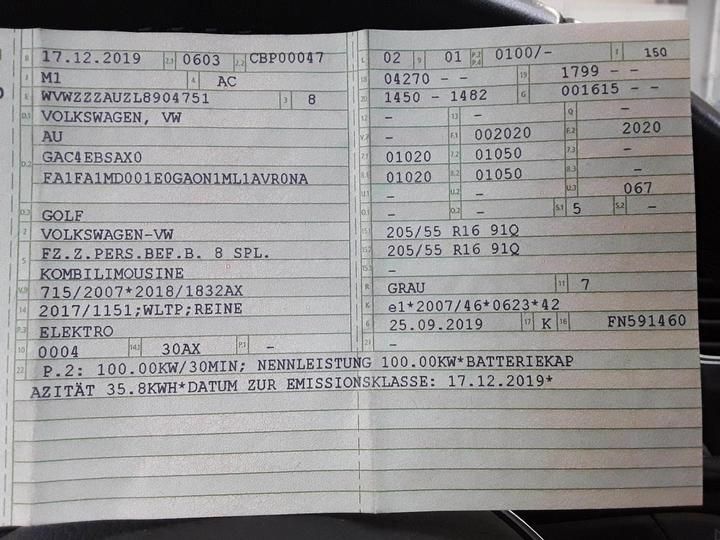 B 17.12.2019 2.1 0603 2.2 CBP00047
J M1 4 AC
E WVWZZZAUZL8904751 3 8
D.1 VOLKSWAGEN, VW
AU
D.2 GAC4EBSAX0
FA1FA1MD001E0GAON1ML1AVR0NA
D.3 GOLF
2 VOLKSWAGEN-VW
5 FZ.Z.PERS.BEF.B. 8 SPL.
KOMBILIMOUSINE
V.9 715/2007*2018/1832AX
14 2017/1151;WLTP;REINE
P.3 ELEKTRO
10 0004 14.1 30AX P.1 -
22 P.2: 100.00KW/30MIN; NENNLEISTUNG 100.00KW*BATTERIEKAP
AZITÄT 35.8KWH*DATUM ZUR EMISSIONSKLASSE: 17.12.2019*
L 02 9 01 P.2 P.4 0100/- T 150
18 04270 - - 19 1799 - -
20 1450 - 1482 G 001615 - -
12 - 13 - Q -
V.7 - F.1 002020 F.2 2020
7.1 01020 7.2 01050 7.3 -
8.1 01020 8.2 01050 8.3 -
U.1 - U.2 - U.3 067
O.1 - O.2 - S.1 5 S.2 -
15.1 205/55 R16 91Q
15.2 205/55 R16 91Q
15.3 -
R GRAU 11 7
K e1*2007/46*0623*42
6 25.09.2019 17 K 16 FN591460
21 -